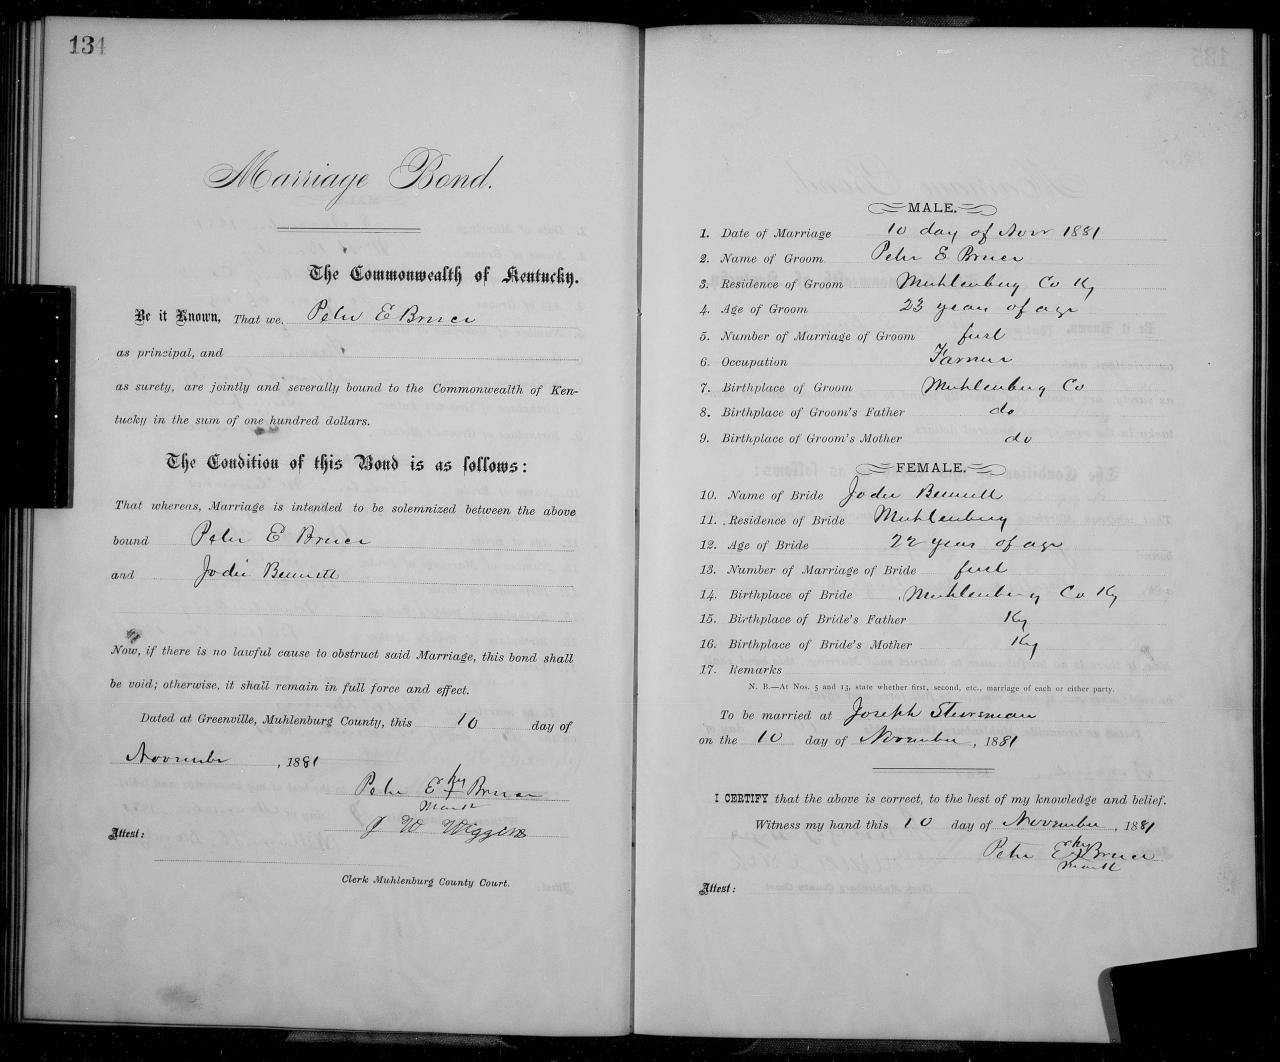 134
Marriage Bond.
The Commonwealth of Kentucky.
Be it Known, That we, Peter E Bruce
as principal, and
as surety, are jointly and severally bound to the Commonwealth of Ken-
tucky in the sum of one hundred dollars.
The Condition of this Bond is as follows:
That whereas, Marriage is intended to be solemnized between the above
bound Peter E Bruce
and Jodie Bennett
Now, if there is no lawful cause to obstruct said Marriage, this bond shall
be void; otherwise, it shall remain in full force and effect.
Dated at Greenville, Muhlenburg County, this 10 day of
November, 1881
Peter E his x Bruce
mark
J W Wiggens
Attest:
Clerk Muhlenburg County Court.
MALE.
1. Date of Marriage 10 day of Novr 1881
2. Name of Groom Peter E Bruce
3. Residence of Groom Muhlenburg Co Ky
4. Age of Groom 23 years of age
5. Number of Marriage of Groom first
6. Occupation Farmer
7. Birthplace of Groom Muhlenburg Co
8. Birthplace of Groom's Father do
9. Birthplace of Groom's Mother do
FEMALE.
10. Name of Bride Jodie Bennett
11. Residence of Bride Muhlenburg
12. Age of Bride 22 years of age
13. Number of Marriage of Bride first
14. Birthplace of Bride Muhlenburg Co Ky
15. Birthplace of Bride's Father Ky
16. Birthplace of Bride's Mother Ky
17. Remarks
N. B.—At Nos. 5 and 13, state whether first, second, etc., marriage of each or either party.
To be married at Joseph Stursman
on the 10 day of November, 1881
I CERTIFY that the above is correct, to the best of my knowledge and belief.
Witness my hand this 10 day of November, 1881
Peter E his x Bruce
mark
Attest: